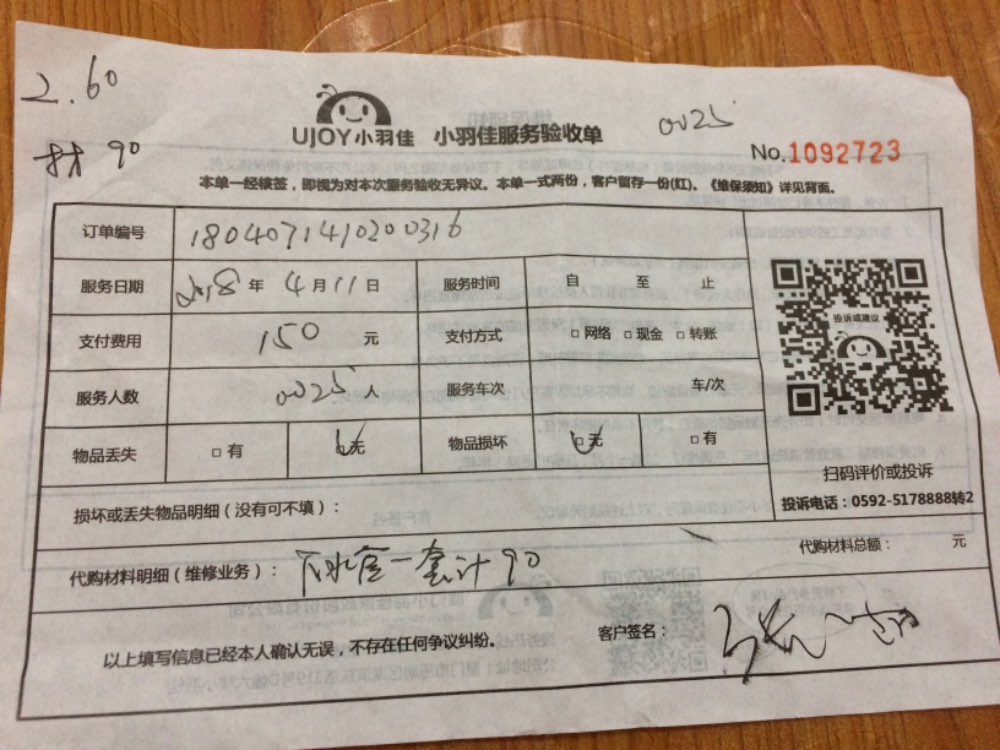 2.60
材 90
UJOY小羽佳 小羽佳服务验收单
0025
No.1092723
本单一经核签，即视为对本次服务验收无异议。本单一式两份，客户留存一份(红)。《维保须知》详见背面。
订单编号 1804071410200316
服务日期 2018 年 4 月 11 日 服务时间 自 至 止
支付费用 150 元 支付方式 □ 网络 □ 现金 □ 转账
服务人数 0025 人 服务车次 车/次
物品丢失 □ 有 □ 无 物品损坏 □ 无 □ 有
投诉或建议
扫码评价或投诉
投诉电话：0592-5178888转2
损坏或丢失物品明细（没有可不填）：
代购材料明细（维修业务）： 下水管一套计90
代购材料总额： 元
以上填写信息已经本人确认无误，不存在任何争议纠纷。
客户签名：